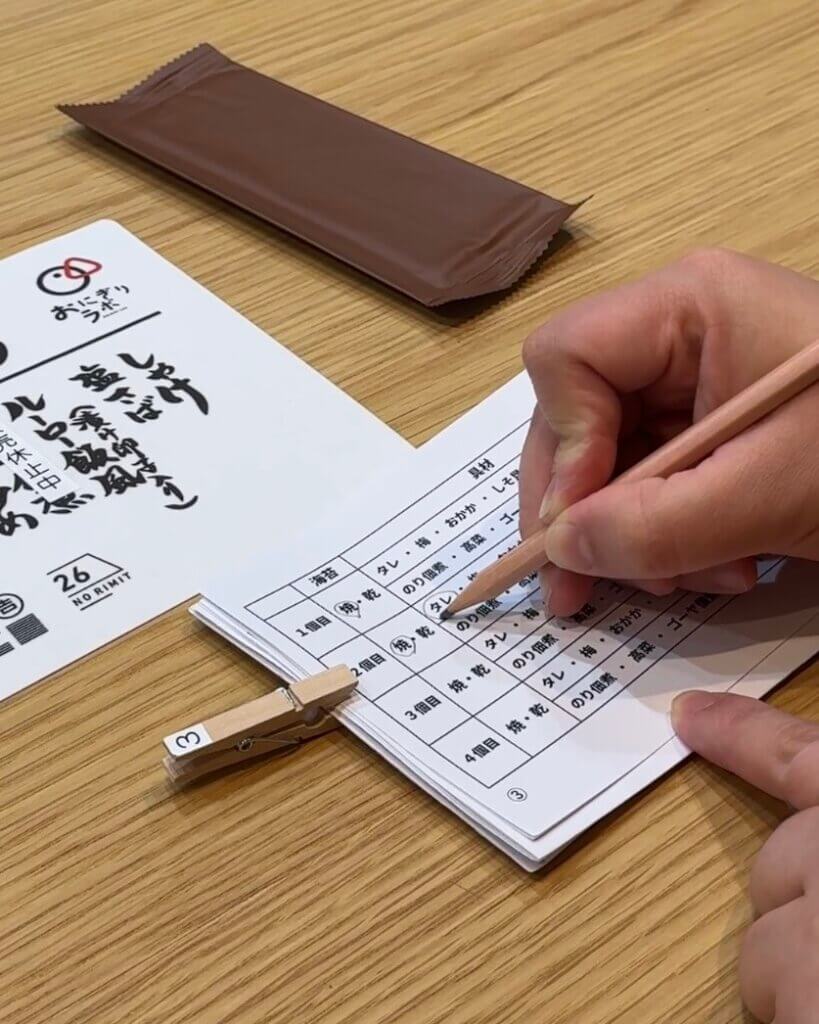 おにぎり
ラボ
しゃけ
塩さば
ルーロー飯風
休止中
26
NO RIMIT
3
海苔
具材
1個目
焼・乾
タレ・梅・おかか・しそ
のり佃煮・高菜・ゴー
2個目
焼・乾
タレ
のり佃煮
3個目
焼・乾
タレ・梅
のり佃煮
4個目
焼・乾
タレ・梅・おかか
のり佃煮・高菜・ゴーヤ
③